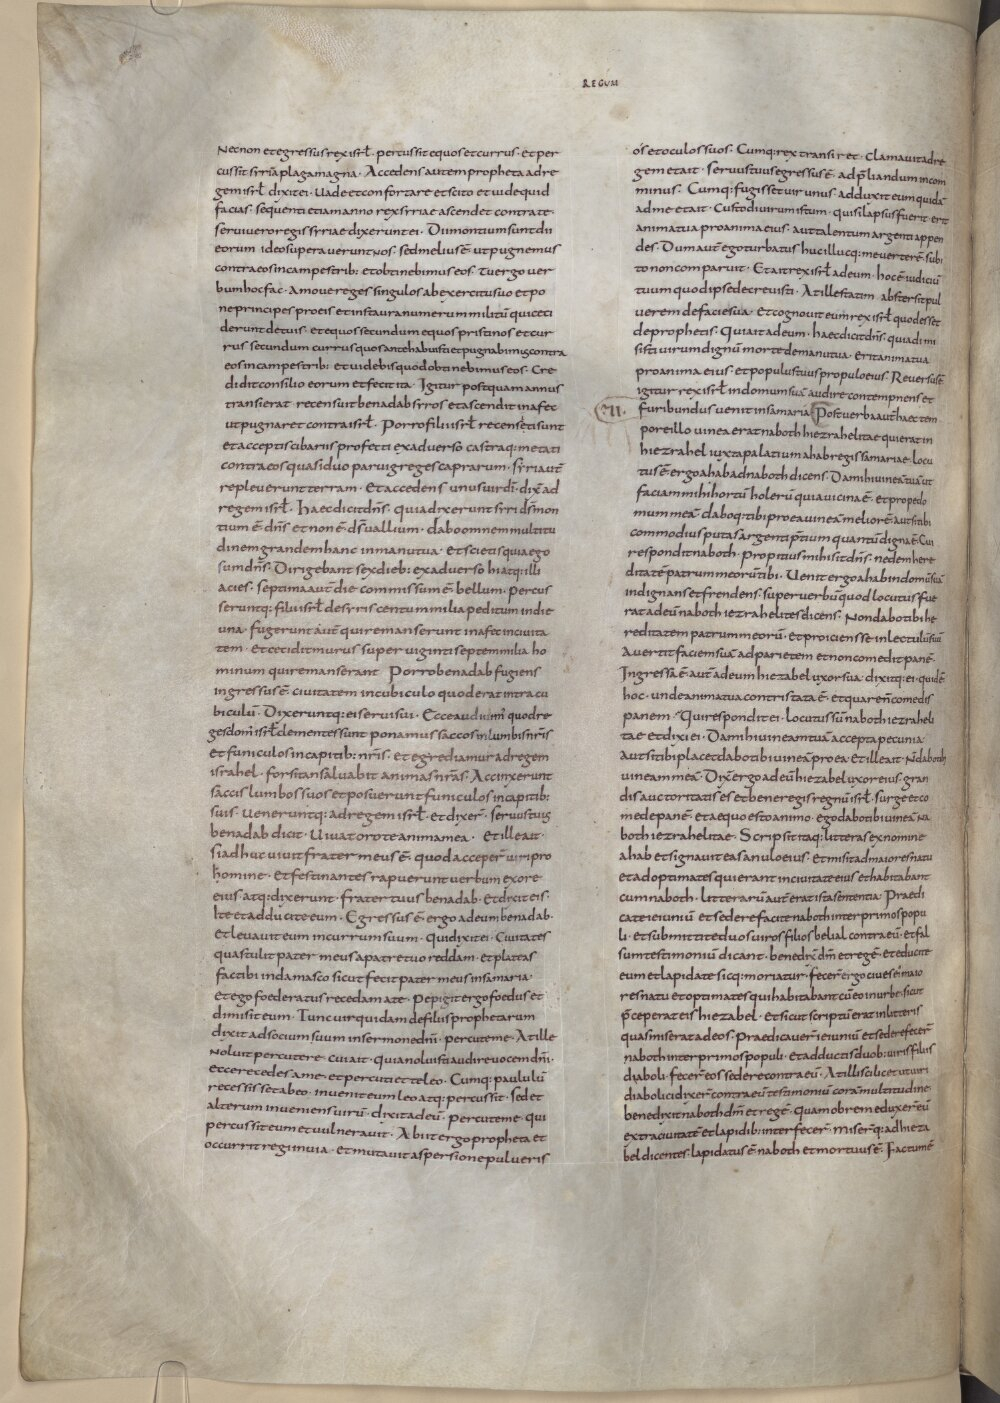 REGUM
Necnon et egressus rex isrł. percussit equos et currus. et per
cussit syriā plaga magna. Accedens autem propheta ad re
gem isrł dixit ei. Vade et confortare et scito et vide quid
facias. sequenti etiam anno rex syriae ascendet contra te.
servi vero regis syriae dixerunt ei. Dii montium sunt dii
eorum ideo superaverunt nos. sed melius ē. ut pugnemus
contra eos in campestrib: et obtinebimus eos. Tu ergo ver
bum hoc fac. Amove reges singulos ab exercitu suo et po
ne principes pro eis et instaura numerum militū qui ceci
derunt de tuis. et equos secundum equos pristinos et cur
rus secundum currus quos ante habuisti et pugnabimus contra
eos in campestrib: et videbis quod obtinebimus eos. Cre
didit consilio eorum et fecit ita. Igitur postquam annus
transierat. recensuit benadab syros et ascendit in afec
ut pugnaret contra isrł. Porro filii isrł recensiti sunt
et acceptis cibariis profecti ex adverso castraq: metati
contra eos quasi duo parvi greges caprarum. syri aut̄
repleverunt terram. Et accedens unus vir dī. dix̄ ad
regem isrł. Haec dicit dn̄s. quia dixerunt syri ds̄ mon
tium ē dn̄s et non ē ds̄ vallium. dabo omnem multitu
dinem grandem hanc in manu tua. et scietis quia ego
sum dn̄s. Dirigebant sex dieb: ex adverso hi atq: illi
acies. septima aut̄ die commissum ē bellum. percus
seruntq: filii isrł de syris centum milia peditum in die
una. fugerunt aut̄ qui remanserunt in afec in civita
tem. et cecidit murus super viginti septem milia ho
minum qui remanserant Porro benadab fugiens
ingressus ē civitatem in cubiculo quod erat intra cu
biculū. Dixeruntq: ei servi sui. Ecce audivim̄ quod re
ges dom̄ isrł clementes sunt ponamus saccos in lumbis nr̄is
et funiculos in capitib: nr̄is. et egrediamur ad regem
israhel. forsitan salvabit animas nr̄as. Accinxerunt
saccis lumbos suos et posuerunt funiculos in capitib:
suis. Veneruntq: ad regem isrł. et dixer̄. servus tuus
benadab dicit. Vivat oro te anima mea. et ille ait.
si adhuc vivit frater meus ē. quod acceper̄ viri pro
homine. et festinantes rapuerunt verbum ex ore
eius atq: dixerunt. frater tuus benadab. et dixit eis.
Ite et adducite eum. Egressus ē ergo ad eum benadab.
et levavit eum in currum suum. Qui dixit ei. Civitates
quas tulit pater meus a patre tuo reddam. et plateas
fac tibi in damasco sicut fecit pater meus in samaria.
et ego foederatus recedam a te. Pepigit ergo foedus et
dimisit eum. Tunc vir quidam de filiis prophetarum
dixit ad socium suum in sermone dn̄i. percute me. At ille
noluit percutere. cui ait. quia noluisti audire vocem dn̄i.
ecce recedes a me. et percutiet te leo. Cumq: paululū
recessisset ab eo. invenit eum leo atq: percussit. sed et
alterum inveniens virū. dixit ad eū. percute me. qui
percussit eum et vulneravit. Abiit ergo propheta et
occurrit regi in via. et mutavit aspersione pulveris
ós et oculos suos. Cumq: rex transiret. clamavit ad re
gem et ait. servus tuus egressus ē. ad p̄liandum incom
minus. Cumq: fugisset vir unus. adduxit eum quidā
ad me et ait. Custodi virum istum. qui si lapsus fuerit. erit
anima tua pro anima eius. aut talentum argenti appen
des. Dum aut̄ ego turbatus huc illucq: me verterē. subi
to non comparuit. Et ait rex isrł ad eum. hoc ē iudiciū
tuum quod ipse decrevisti. At ille statim abstersit pul
verem de facie sua. et cognovit eum rex isrł quod esset
de prophetis. Qui ait ad eum. haec dicit dn̄s. quia dimi
sisti virum dignū morte de manu tua. erit anima tua
pro anima eius. et populus tuus pro populo eius. Reversus ē
igitur rex isrł in domum suā audire contempnens et
VII. furibundus venit in samaria. Post verba aut̄ haec tem
pore illo vinea erat naboth hiezrahelitae qui erat in
hiezrahel iuxta palatium ahab regis samariae. locu
tus ē ergo ahab ad naboth dicens. Da mihi vineā tuā ut
faciam mihi hortū holerū quia vicina ē. et prope do
mum meā. daboq: tibi pro ea vineā meliorē. aut si tibi
commodius putas argenti p̄tium quantū digna ē. Cui
respondit naboth. propitius mihi sit dn̄s. ne dem here
ditatē patrum meorū tibi. Venit ergo ahab in domū suā
indignans et frendens. super verbū quod locutus fue
rat ad eū naboth iezrahelites dicens. Non dabo tibi he
reditatem patrum meorū. et proiciens se in lectulū suū
avertit faciem suā ad parietem et non comedit panē.
Ingressa ē aut̄ ad eum hiezabel uxor sua. dixitq: ei. quid ē
hoc. unde anima tua contristata ē. et quare n̄ comedis
panem. Qui respondit ei. locutus sū naboth iezraheli
tae et dixi ei. Da mihi vineam tuā accepta pecunia
aut si tibi placet dabo tibi vineā pro ea. et ille ait. N̄ dabo tibi
vineam meā. Dix̄ ergo ad eū hiezabel uxor eius. gran
dis auctoritatis es et bene regis regnū isrł. surge et co
mede panē. et aequo esto animo. ego dabo tibi vineā na
both iezrahelitae. Scripsit itaq: litteras ex nomine
ahab et signavit eas anulo eius. et misit ad maiores natu
et ad optimates qui erant in civitate eius et habitabant
cum naboth. litterarū aut̄ erat ista sententia. Praedi
cate ieiuniū et sedere facite naboth inter primos popu
li. et submittite duos viros filios belial contra eū. et fal
sum testimoniū dicant. benedix̄ dm̄ et regē. et educite
eum et lapidate sicq: moriatur. fecer̄ ergo cives ei maio
res natu et optimates qui habitabant cū eo in urbe. sicut
p̄ceperat eis hiezabel. et sicut scriptū erat in litteris
quas miserat ad eos. Praedicaver̄ ieiuniū et sedere fecer̄
naboth inter primos populi. et adductis duob: viris filiis
diaboli. fecer̄ eos sedere contra eū. At illi scilicet ut viri
diabolici dixer̄ contra eū testimoniū corā multitudine.
benedixit naboth dm̄ et regē. Quamobrem eduxer̄ eū
extra civitatē et lapidib: interfecer̄. miser̄q: ad hieza
bel dicentes. lapidatus ē naboth et mortuus ē. Factum ē